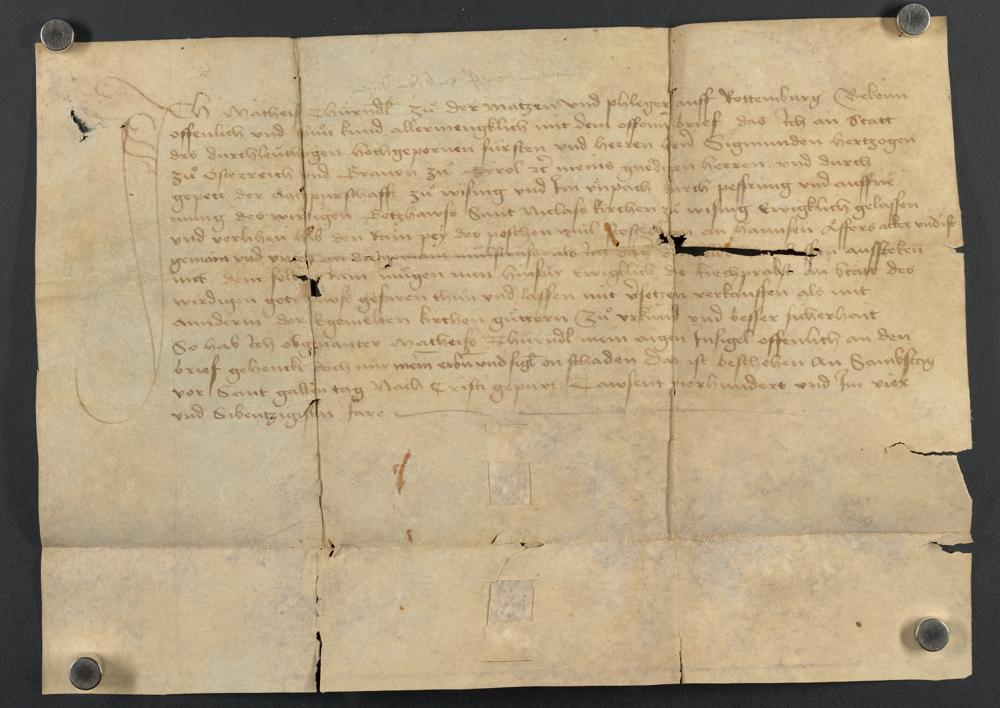 Ich Matheiß Thürndl zů der matzen und phleger auff Rottemburg Bekenn
offenlich und thun kund allermengklich mit dem offenn brief das Ich an Statt
des durchleuchtigen hochgepornen fürsten und herren hern Sigmunden hertzogen
zů Österreich und Graven zů Tyrol etc meins gnedigen herren und durch
gepett der nachpurschafft zů wising und Im pach durch pessrung und auffne
mung des wirdigen Gotzhawss Sant Niclass kirchen zů wising Ewigklich gelassen
und verlihen hab den Rain pey des peschen mül an hannsen äffers acker und ist
gemain und als Ich aussteken
mit dem selben Rain mügen nun hinfür Ewigklich die kirchprabst An Statt des
wirdigen gotzhawss gefaren thun und lassen mit versetzen verkauffen als mit
anndern der egemelten kirchen güttern Zů urkund und besser sicherhait
So hab Ich obgenanter Matheiss Thürndl mein aigen Insigel offenlich an den
brief gehenckt doch mir mein erbn und sigl on schaden Das ist beschehen An Sambstag
vor Sant gallen tag Nach Cristi gepurt Tawsent vierhundert und Im vier
und Sibentzigisten Jare